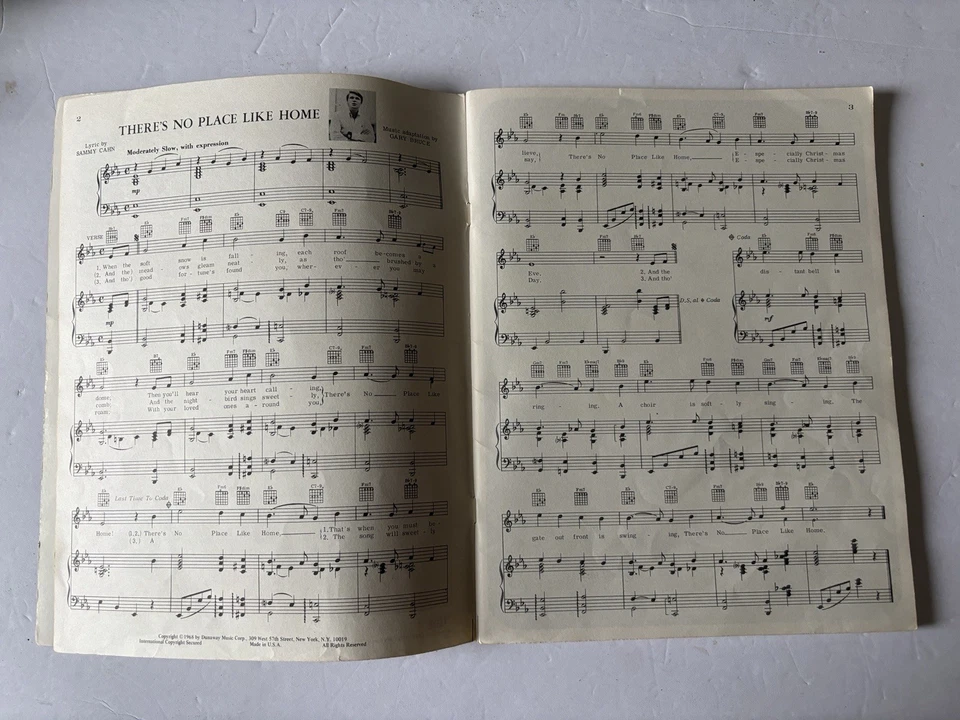 2
THERE'S NO PLACE LIKE HOME
Lyric by
SAMMY CAHN
Music adaptation by
GARY BRUCE
Moderately Slow, with expression
mp
VERSE
1. When the soft snow is fall - ing, each roof be-comes a
(2. And the) mead - ows gleam neat - ly, as tho' brushed by a
(3. And tho') good for - tune's found you, wher - ev - er you may
mp
dome; Then you'll hear your heart call - ing,
comb; And the night - bird sings sweet - ly, There's No Place Like
roam; With your loved ones a - round you,
Last Time To Coda
Home! (1,2.) There's No Place Like Home. 1. That's when you must be-
(3.) A 2. The song will sweet - ly
Copyright ©1968 by Dunaway Music Corp., 309 West 57th Street, New York, N.Y. 10019
International Copyright Secured Made in U.S.A. All Rights Reserved
3
lieve, There's No Place Like Home, E - spe - cially Christ - mas
say, E - spe - cially Christ - mas
Coda
Eve. 2. And the
Day. 3. And tho'
dis - tant bell is
D.S. al Coda
mf
ring - ing. A choir is soft - ly sing - ing, The
gate out front is swing - ing, There's No Place Like Home.